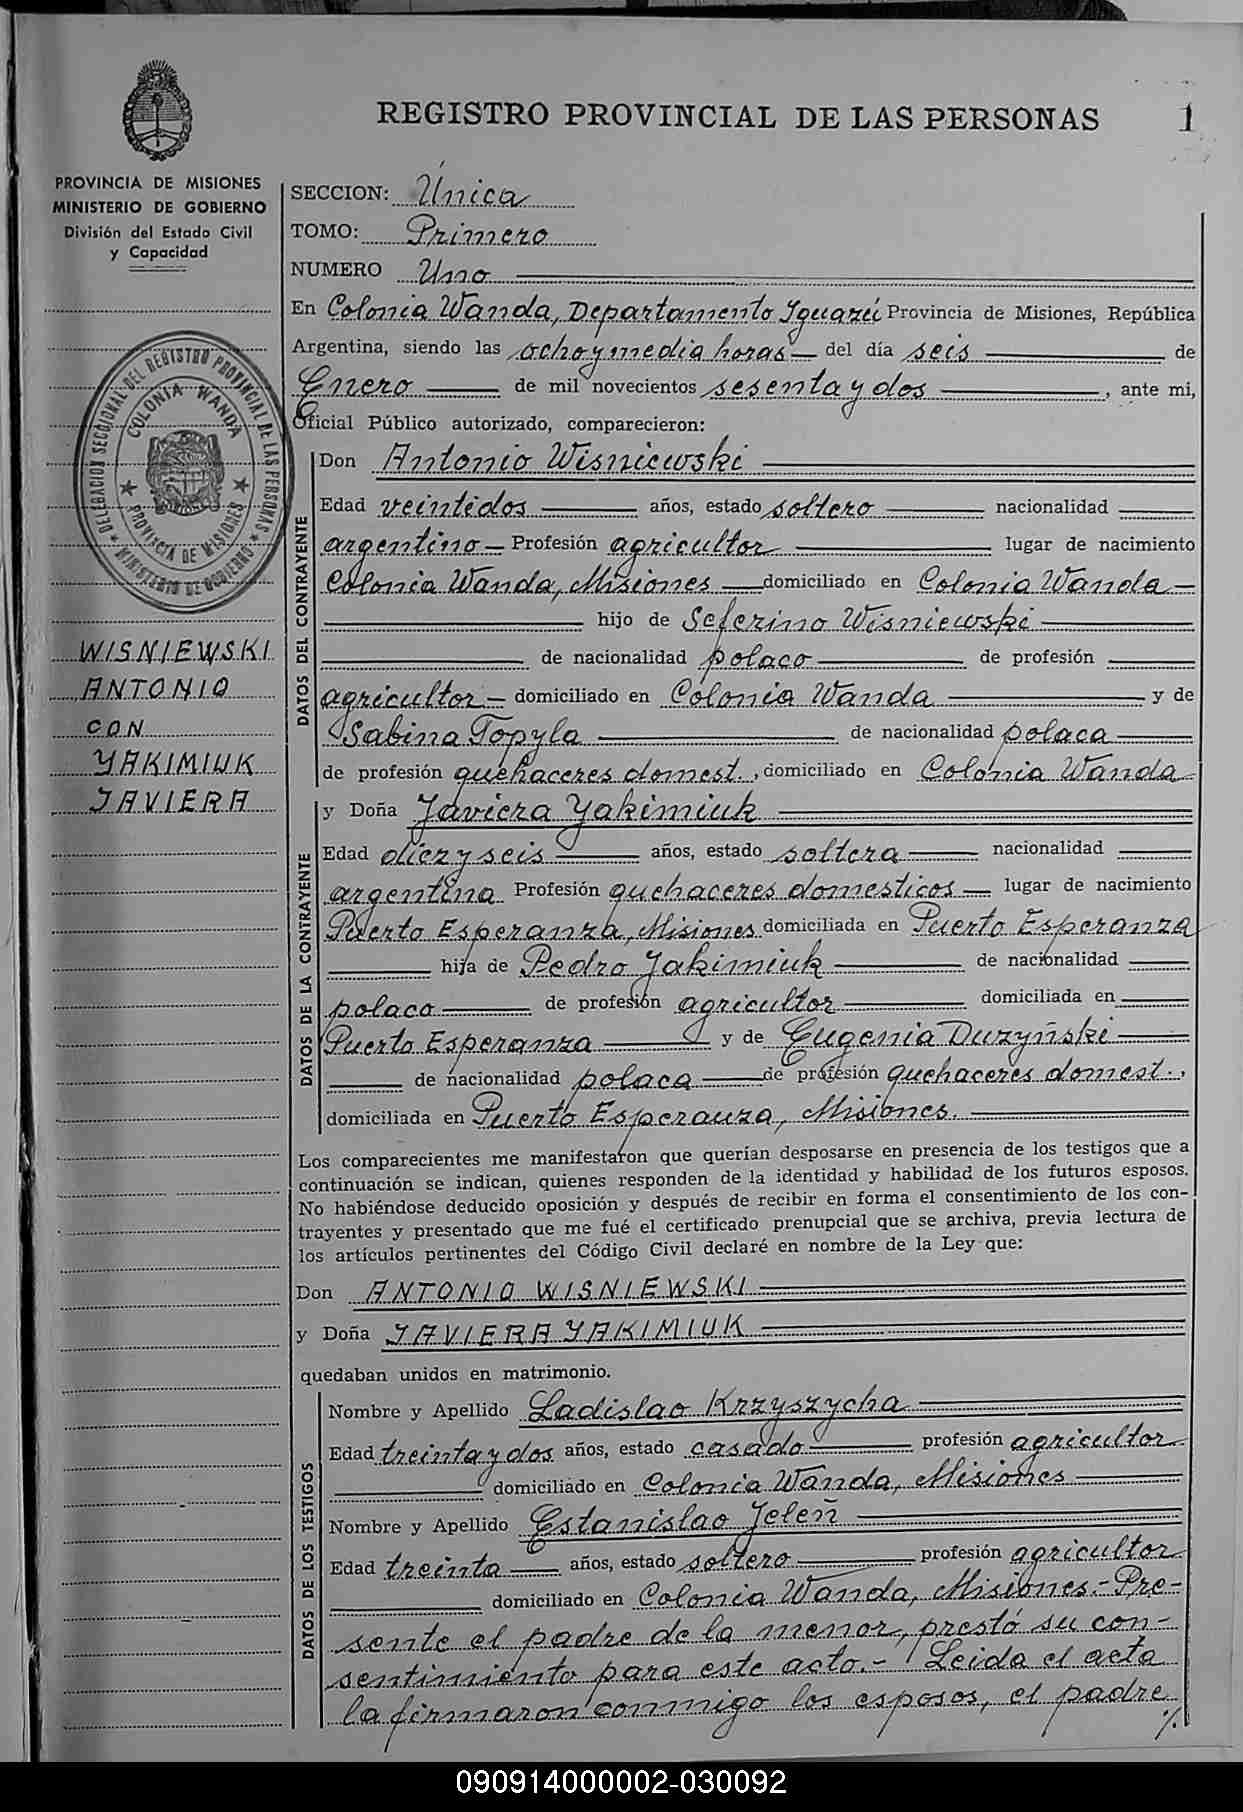 REGISTRO PROVINCIAL DE LAS PERSONAS 1
PROVINCIA DE MISIONES
MINISTERIO DE GOBIERNO
División del Estado Civil
y Capacidad
DELEGACION SECCIONAL DEL REGISTRO PROVINCIAL DE LAS PERSONAS
MINISTERIO DE GOBIERNO
COLONIA WANDA
PROVINCIA DE MISIONES
WISNIEWSKI
ANTONIO
CON
YAKIMIUK
JAVIERA
SECCION: Única
TOMO: Primero
NUMERO Uno
En Colonia Wanda, Departamento Iguazú Provincia de Misiones, República
Argentina, siendo las ocho y media horas del día seis de
Enero de mil novecientos sesenta y dos, ante mi,
Oficial Público autorizado, comparecieron:
DATOS DEL CONTRAYENTE
Don Antonio Wisniewski
Edad veintidos años, estado soltero nacionalidad
argentino Profesión agricultor lugar de nacimiento
Colonia Wanda, Misiones domiciliado en Colonia Wanda
hijo de Seferino Wisniewski
de nacionalidad polaco de profesión
agricultor domiciliado en Colonia Wanda y de
Sabina Topyla de nacionalidad polaca
de profesión quehaceres domest., domiciliado en Colonia Wanda
DATOS DE LA CONTRAYENTE
y Doña Javiera Yakimiuk
Edad diez y seis años, estado soltera nacionalidad
argentina Profesión quehaceres domesticos lugar de nacimiento
Puerto Esperanza, Misiones domiciliada en Puerto Esperanza
hija de Pedro Jakimiuk de nacionalidad
polaco de profesión agricultor domiciliada en
Puerto Esperanza y de Eugenia Duzyñski
de nacionalidad polaca de profesión quehaceres domest.,
domiciliada en Puerto Esperanza, Misiones.
Los comparecientes me manifestaron que querían desposarse en presencia de los testigos que a
continuación se indican, quienes responden de la identidad y habilidad de los futuros esposos.
No habiéndose deducido oposición y después de recibir en forma el consentimiento de los con-
trayentes y presentado que me fué el certificado prenupcial que se archiva, previa lectura de
los artículos pertinentes del Código Civil declaré en nombre de la Ley que:
Don ANTONIO WISNIEWSKI
y Doña JAVIERA YAKIMIUK
quedaban unidos en matrimonio.
DATOS DE LOS TESTIGOS
Nombre y Apellido Ladislao Krzyszycha
Edad treinta y dos años, estado casado profesión agricultor
domiciliado en Colonia Wanda, Misiones
Nombre y Apellido Estanislao Jeleñ
Edad treinta años, estado soltero profesión agricultor
domiciliado en Colonia Wanda, Misiones.- Pre-
sente el padre de la menor, prestó su con-
sentimiento para este acto.- Leida el acta
la firmaron conmigo los esposos, el padre
./.
090914000002-030092